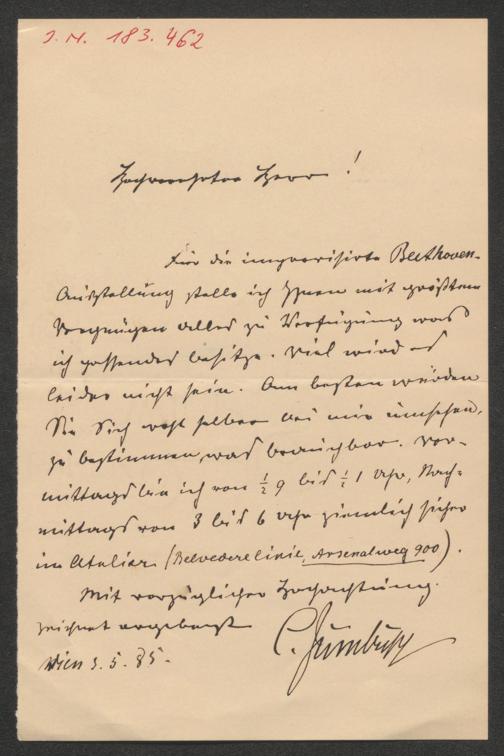 I. N. 183.462
Hochverehrter Herr!
Für die improvisirte Beethoven-
Ausstellung stelle ich Ihnen mit größtem
Vergnügen alles zu Verfügung was
ich passendes besitze. Viel wird es
leider nicht sein. Am besten würden
Sie Sich wohl selber bei mir umsehen,
zu bestimmen, was brauchbar. Vor-
mittags bin ich von ½9 bis ½1 Uhr, Nach-
mittags von 3 bis 6 Uhr ziemlich sicher
im Atelier (Belvederelinie, Arsenalweg 900).
Mit vorzüglicher Hochachtung
zeichnet ergebenst
C. Zumbusch
Wien 3.5.85.